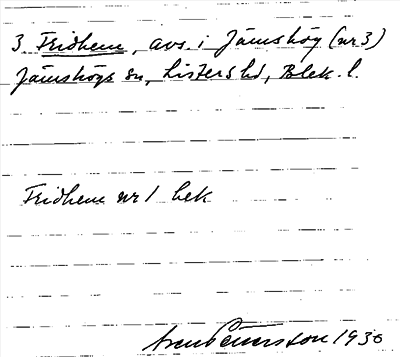 3. Fridhem, avs. i Jämshög (nr 3)
Jämshögs sn, Listers hd, Blek. l.
Fridhem nr 1 bek
1930